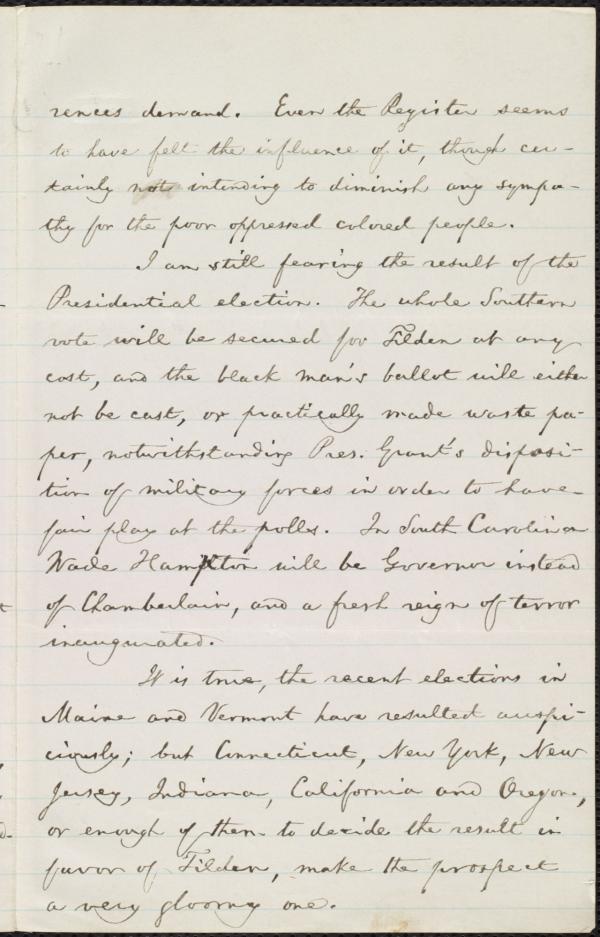 rences demand. Even the Register seems
to have felt the influence of it, though cer-
tainly not intending to diminish any sympa-
thy for the poor oppressed colored people.
I am still fearing the result of the
Presidential election. The whole Southern
vote will be secured for Tilden at any
cost, and the black man's ballot will either
not be cast, or practically made waste pa-
per, notwithstanding Pres. Grant's disposi-
tion of military forces in order to have
fair play at the polls. In South Carolina
Wade Hampton will be Governor instead
of Chamberlain, and a fresh reign of terror
inaugurated.
It is true, the recent elections in
Maine and Vermont have resulted auspi-
ciously; but Connecticut, New York, New
Jersey, Indiana, California and Oregon,
or enough of them to decide the result in
favor of Tilden, make the prospect
a very gloomy one.